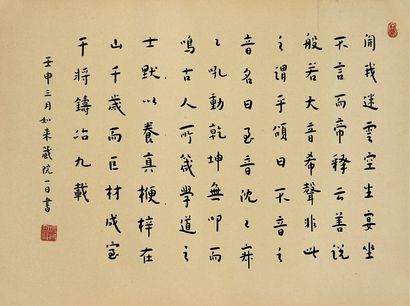 開我迷雲空生宴坐
不言而帝釋云善說
般若大音希聲非此
之謂乎頌曰不音之
音名曰至音沈沈寂
寂吼動乾坤無叩而
鳴古人所箴學道之
士默以養真楩梓在
山千歲而巨材成寶
干將鑄冶九載
壬申三月如來藏院一日書